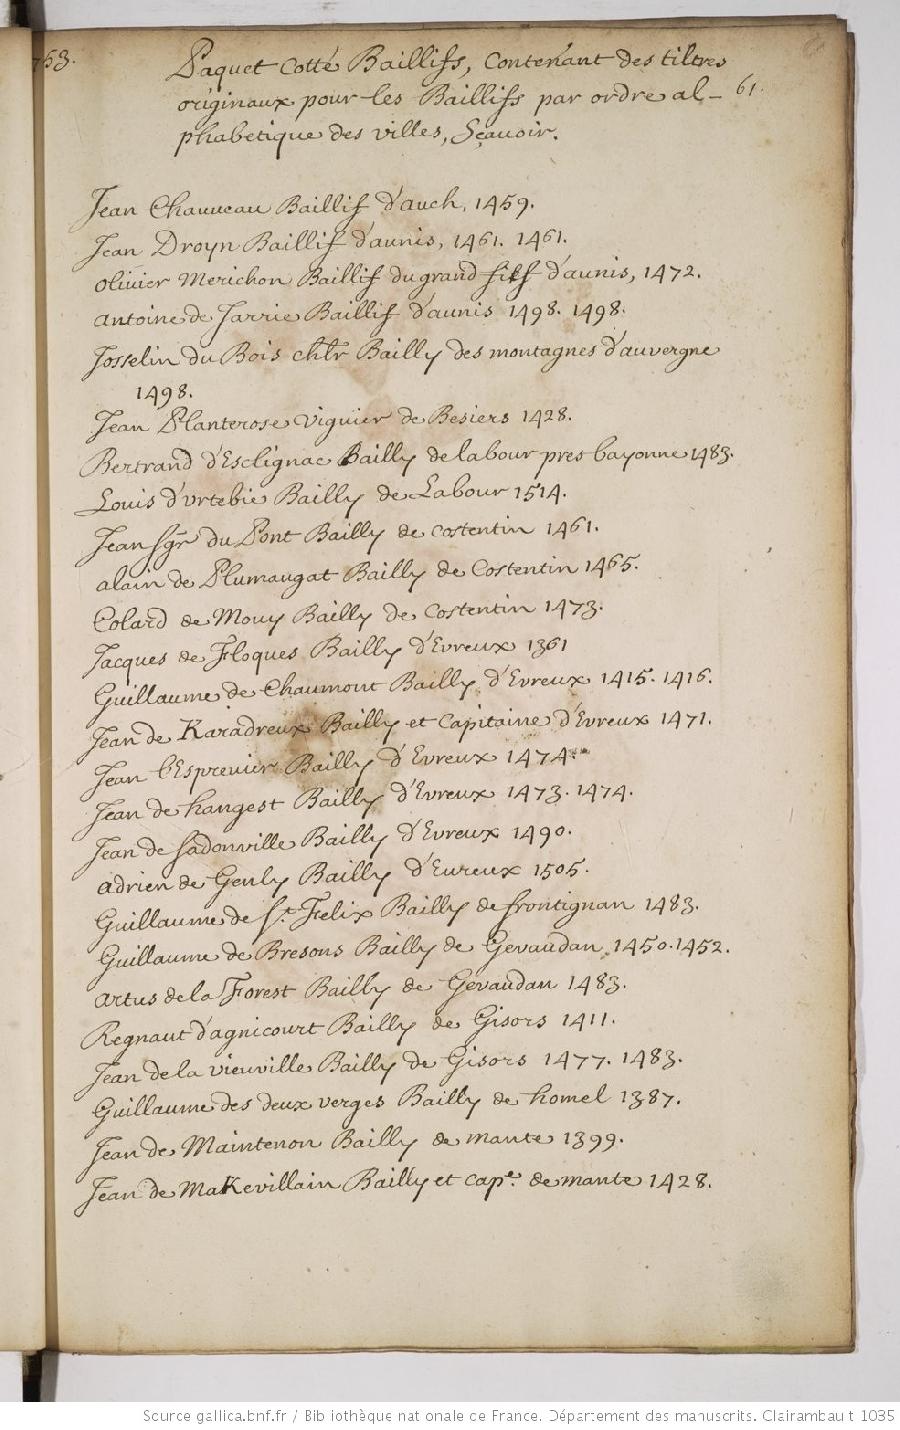 753.
Paquet cotté Baillifs, contenant des tiltres
originaux pour les Baillifs par ordre al-
61.
phabetique des villes, Sçauoir.
Jean Chauueau Baillif d'auch, 1459.
Jean Droyn Baillif d'aunis, 1461. 1461.
olivier Merichon Baillif du grand fief d'aunis, 1472.
antoine de Jarrie Baillif d'aunis 1498. 1498.
Josselin du Bois chlr Bailly des montagnes d'auvergne
1498.
Jean Planterose viguier de Besiers 1428.
Bertrand d'Esclignac Bailly de labour pres bayonne 1483.
Louis d'urtebie Bailly de Labour 1514.
Jean sgr du Pont Bailly de costentin 1461.
alain de Plumaugat Bailly de Costentin 1465.
Colard de Mouy Bailly de costentin 1473.
Jacques de Floques Bailly d'Evreux 1361
Guillaume de Chaumont Bailly d'Evreux 1415. 1416.
Jean de Karadreux Bailly et capitaine d'Evreux 1471.
Jean l'Esprevier Bailly d'Evreux 1474.
Jean de hangest Bailly d'Evreux 1473. 1474.
Jean de sadonville Bailly d'Evreux 1490.
adrien de Genly Bailly d'Eureux 1505.
Guillaume de St. Felix Bailly de frontignan 1483.
Guillaume de Bresons Bailly de Gevaudan 1450. 1452.
artus de la Forest Bailly de Gevaudan 1483.
Regnaut d'agnicourt Bailly de Gisors 1411.
Jean de la vieuville Bailly de Gisors 1477. 1483.
Guillaume des deux verges Bailly de homel 1387.
Jean de Maintenon Bailly de mante 1399.
Jean de Makevillain Bailly et cape. de mante 1428.
Source gallica.bnf.fr / Bibliothèque nationale de France. Département des manuscrits. Clairambault 1035